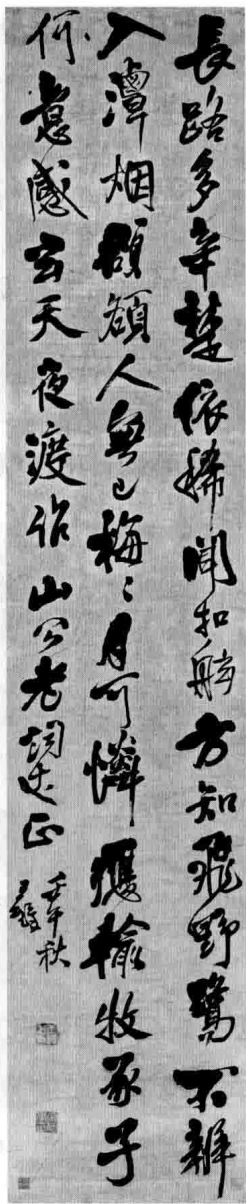 長路多辛楚依稀聞扣舷方知飛野鷺不辨
入潭烟頷人無已梅〻月可憐獲輸牧豕子
何意感玄天夜渡作山公老詞丈正
壬午秋
王鐸